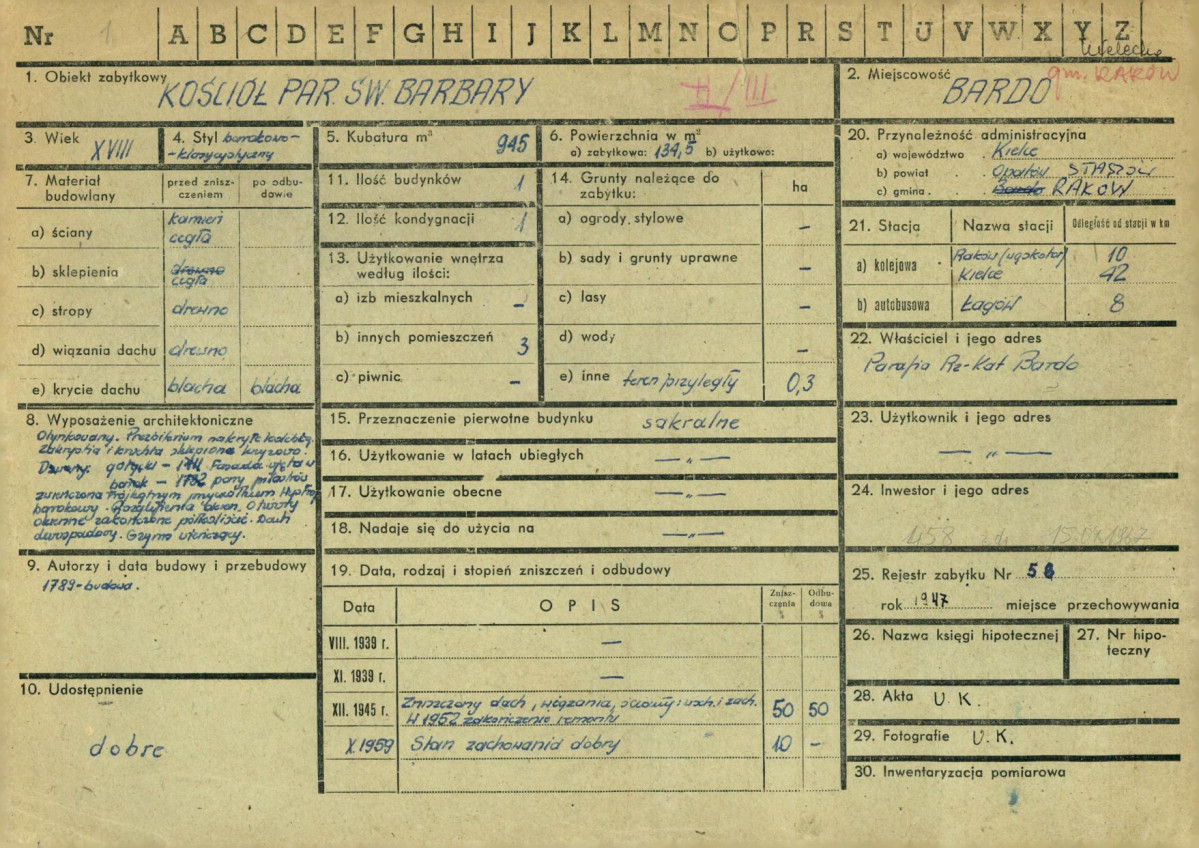 Nr 1 A B C D E F G H I J K L M N O P R S T U V W X Y Z
1. Obiekt zabytkowy
KOŚCIÓŁ PAR. ŚW. BARBARY II/III
2. Miejscowość
BARDO gm. RAKÓW
3. Wiek
XVIII
4. Styl barokowo-
-klasycystyczny
5. Kubatura m³ 945
6. Powierzchnia w m²
a) zabytkowa: 134,5 b) użytkowa:
7. Materiał budowlany
przed zniszczeniem
po odbudowie
a) ściany kamień
cegła
b) sklepienia drewno
cegła
c) stropy drewno
d) wiązania dachu drewno
e) krycie dachu blacha blacha
8. Wyposażenie architektoniczne
Otynkowany. Prezbiterium nakryte kolebką.
Zakrystia i kruchta sklepione krzyżowo.
Dzwony: gotycki - 1711 Fasada ujęta w
barok - 1732 pary pilastrów
zwieńczona trójkątnym przyczółkiem
barokowy. Otwory
okienne zakończone półkoliście. Dach
dwuspadowy. Gzyms wieńczący.
9. Autorzy i data budowy i przebudowy
1789 - budowa.
10. Udostępnienie
dobre
11. Ilość budynków 1
12. Ilość kondygnacji 1
13. Użytkowanie wnętrza
według ilości:
a) izb mieszkalnych -
b) innych pomieszczeń 3
c) piwnic -
14. Grunty należące do
zabytku: ha
a) ogrody stylowe -
b) sady i grunty uprawne -
c) lasy -
d) wody -
e) inne teren przyległy 0,3
15. Przeznaczenie pierwotne budynku sakralne
16. Użytkowanie w latach ubiegłych — „ —
17. Użytkowanie obecne — „ —
18. Nadaje się do użycia na — „ —
19. Data, rodzaj i stopień zniszczeń i odbudowy
Data OPIS Zniszczenia % Odbudowa %
VIII. 1939 r. —
XI. 1939 r. —
XII. 1945 r. Zniszczony dach, wiązania, ściany: wsch. i zach.
W 1952 zakończenie remontu 50 50
X.1959 Stan zachowania dobry 10 -
20. Przynależność administracyjna
a) województwo Kielce
b) powiat Opatów STASZÓW
c) gmina Bardo RAKÓW
21. Stacja Nazwa stacji Odległość od stacji w km
a) kolejowa Raków (wąskotor) 10
Kielce 42
b) autobusowa Łagów 8
22. Właściciel i jego adres
Parafia Rz-Kat Bardo
23. Użytkownik i jego adres
— „ —
24. Inwestor i jego adres
458 z dn. 15.04.1967
25. Rejestr zabytku Nr 58
rok 1947 miejsce przechowywania
26. Nazwa księgi hipotecznej
27. Nr hipoteczny
28. Akta U.K.
29. Fotografie U.K.
30. Inwentaryzacja pomiarowa